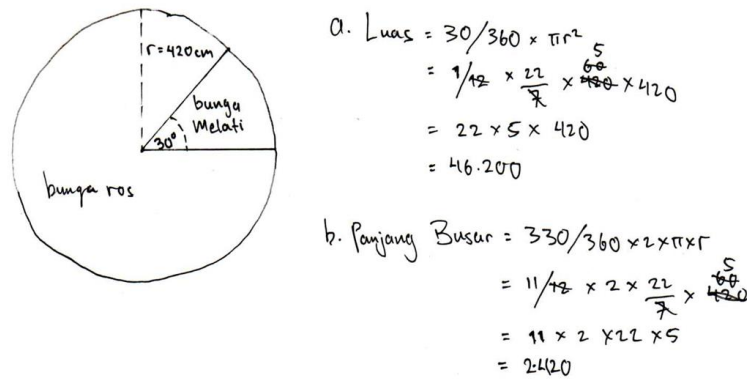 r = 420 cm
bunga
Melati
30°
bunga ros
a. Luas = 30/360 × πr²
5
60
= 1/12 × 22/7 × 420 × 420
= 22 × 5 × 420
= 46.200
b. Panjang Busur = 330/360 × 2 × π × r
5
60
= 11/12 × 2 × 22/7 × 420
= 11 × 2 × 22 × 5
= 2.420